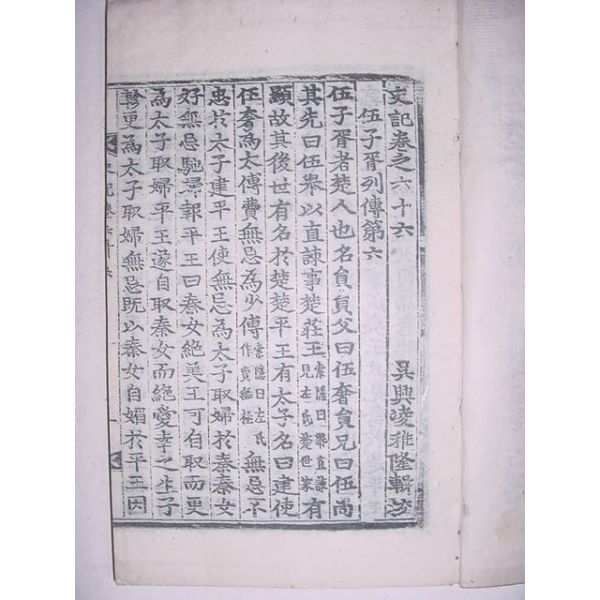 史記卷之六十六 吳興凌稚隆輯校
伍子胥列傳第六
伍子胥者楚人也名員員父曰伍奢員兄曰伍尚
其先曰伍舉以直諫事楚莊王索隱曰舉直諫見左氏楚世家有
顯故其後世有名於楚楚平王有太子名曰建使
伍奢為太傅費無忌為少傅索隱曰左氏作費無極無忌不
忠於太子建平王使無忌為太子取婦於秦秦女
好無忌馳歸報平王曰秦女絕美王可自取而更
為太子取婦平王遂自取秦女而絕愛幸之生子
軫更為太子取婦無忌既以秦女自媚於平王因